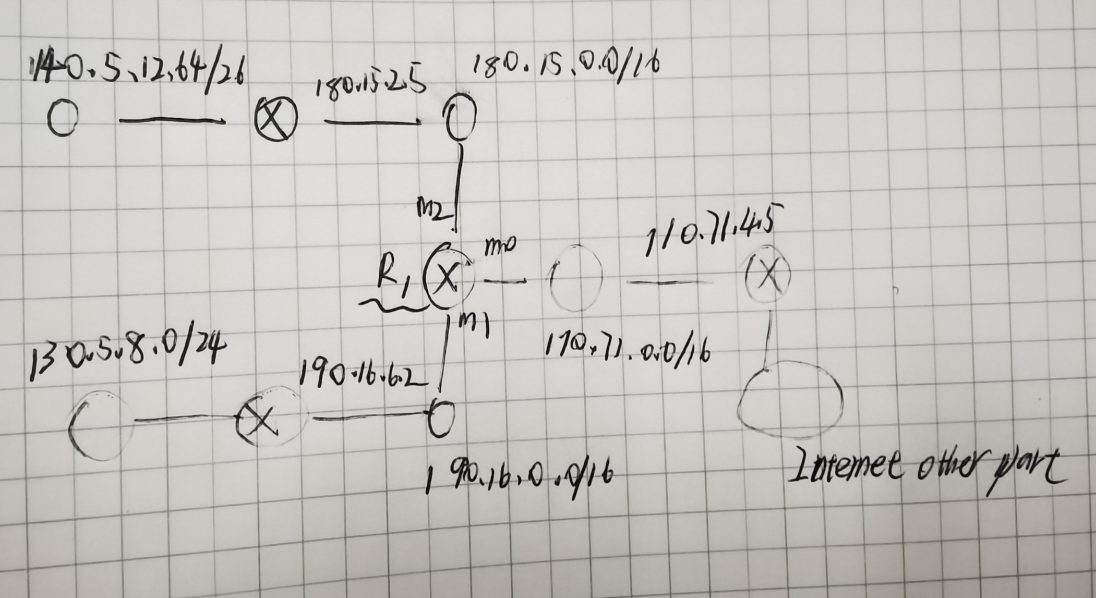 140.5.12.64/26
180.15.2.5
180.15.0.0/16
m2
R1
m0
110.71.4.5
m1
170.71.0.0/16
130.5.8.0/24
190.16.6.2
190.16.0.0/16
Internet other part